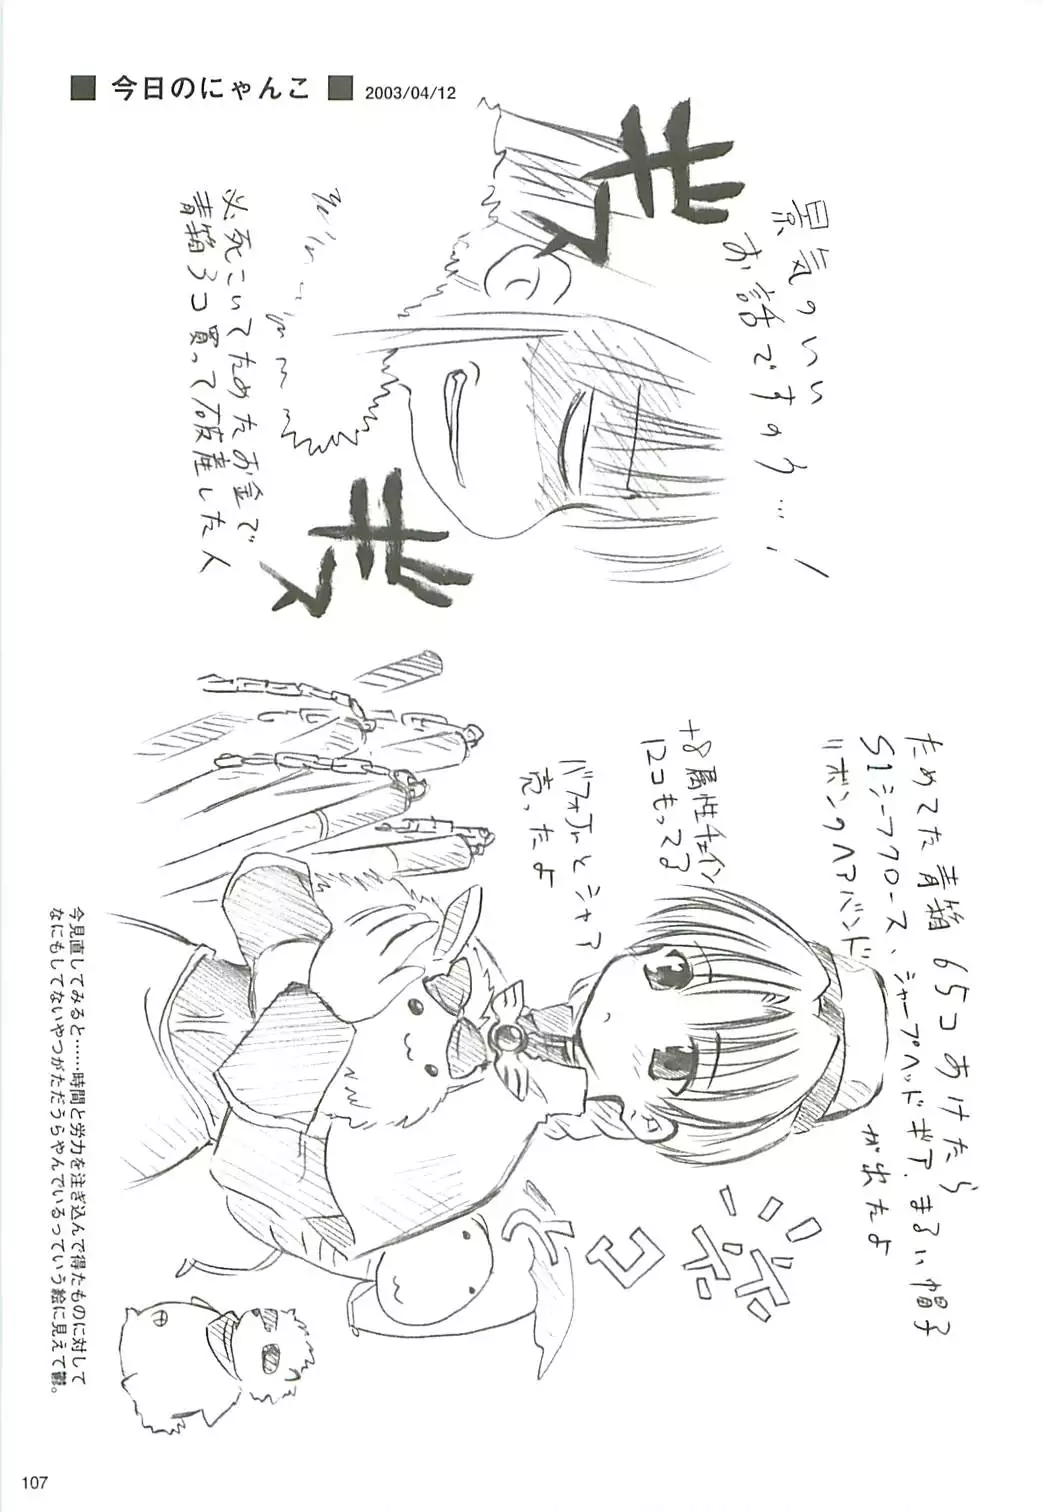 ■ 今日のにゃんこ ■ 2003/04/12
景気のいい
お話ですのう…!
ギッ
ギッ
必死こいてためたお金で
青箱3コ買って破産した人
ためてた青箱65コあけたら
S1シーフクロース、シャープヘッドギア、まるい帽子
リボンのヘアバンドが出たよ
+8属性
12コもってる
バフォJrとシャア
売ったよ
ボボ
コケ
今見直してみると……時間と労力を注ぎ込んで得たものに対して
なにもしてないやつがただうらやんでいるっていう絵に見えて鬱。
107